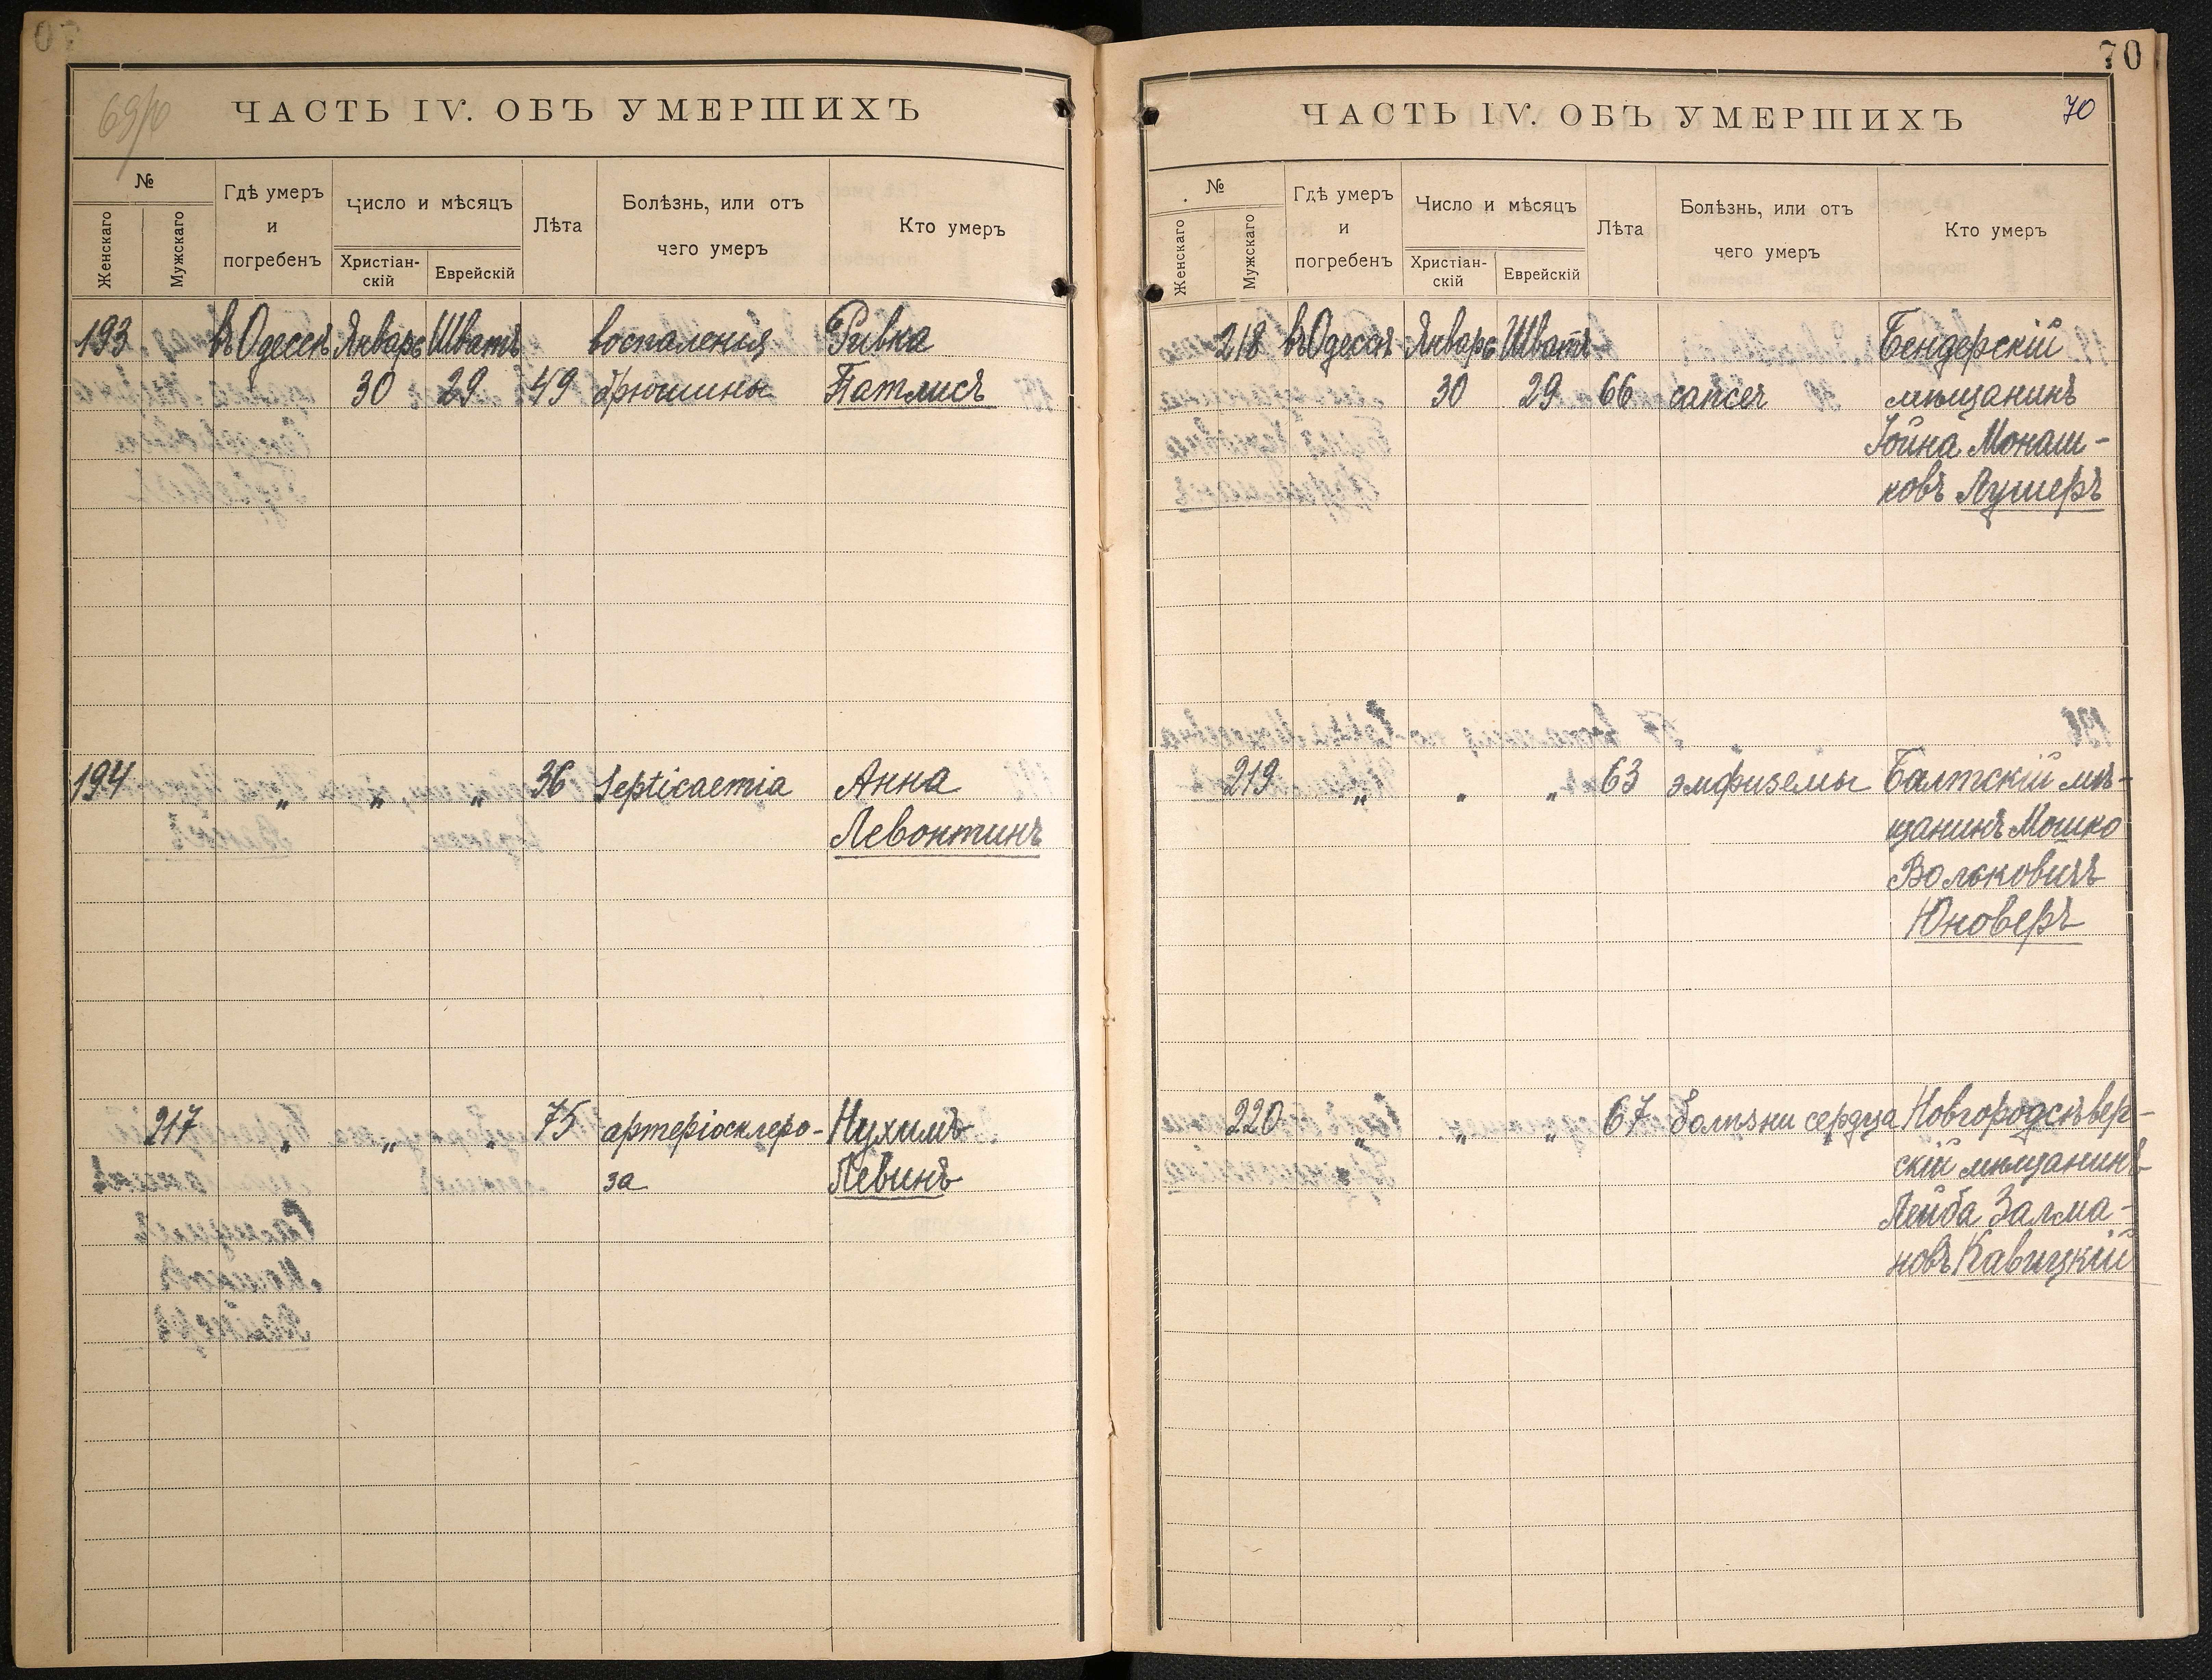 69/70
ЧАСТЬ IV. ОБЪ УМЕРШИХЪ
№
Женскаго
Мужскаго
Гдѣ умеръ
и
погребенъ
Число и мѣсяцъ
Христіан-
скій
Еврейскій
Лѣта
Болѣзнь, или отъ
чего умеръ
Кто умеръ
193 въ Одессѣ Январь Шватъ воспаленія Ривка
30 29 49 брюшины Патлисъ
194 „ „ „ 36 Septicaemia Анна
Левонтинъ
217 „ „ „ 75 артеріосклеро- Нухимъ
за Левинъ
70
ЧАСТЬ IV. ОБЪ УМЕРШИХЪ
70
№
Женскаго
Мужскаго
Гдѣ умеръ
и
погребенъ
Число и мѣсяцъ
Христіан-
скій
Еврейскій
Лѣта
Болѣзнь, или отъ
чего умеръ
Кто умеръ
218 въ Одессѣ Январь Шватъ Бендерскій
30 29 66 cancer мѣщанинъ
Іойна Монаш-
ковъ Лушеръ
219 „ „ „ 63 эмфиземы Балтскій мѣ-
щанинъ Мошко
Вольковичъ
Юноверъ
220 „ „ „ 67 болѣзни сердца Новгородсѣвер-
скій мѣщанинъ
Лейба Залма-
новъ Кавицкій